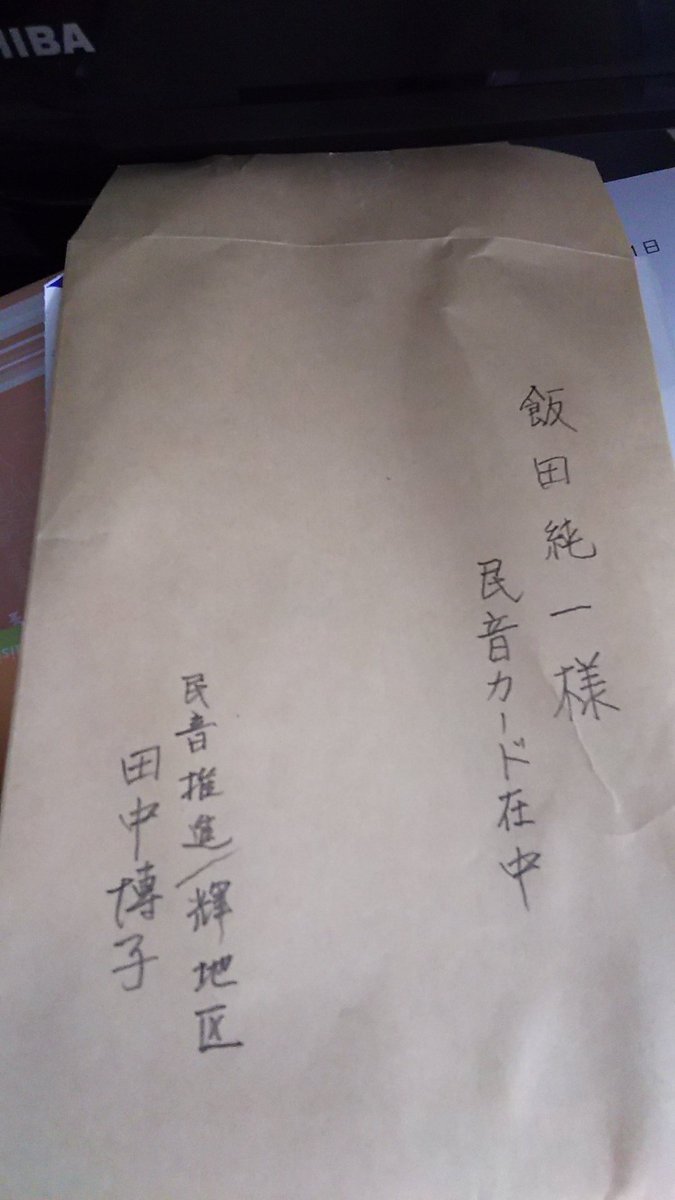 HIBA
1日
飯田純一様
民音カード在中
民音推進/輝地区
田中博子